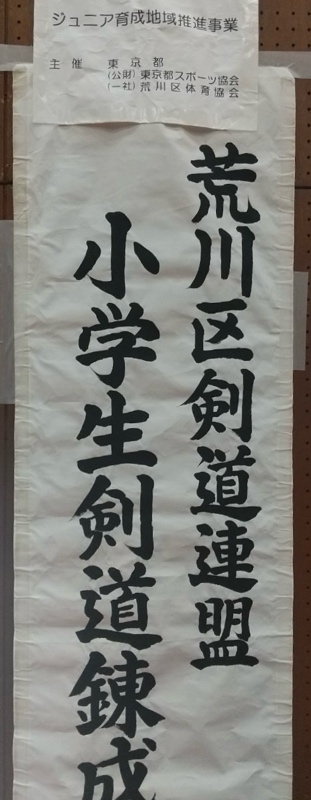 ジュニア育成地域推進事業
主催 東京都
(公財)東京都スポーツ協会
(一社)荒川区体育協会
荒川区剣道連盟
小学生剣道錬成